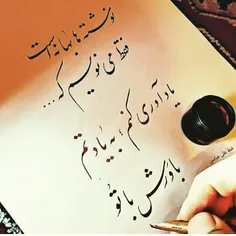 نوشته ها بهانه است
فقط می نویسم که ...
یادآوری کنم ؛ به یادتم
باورش با تو